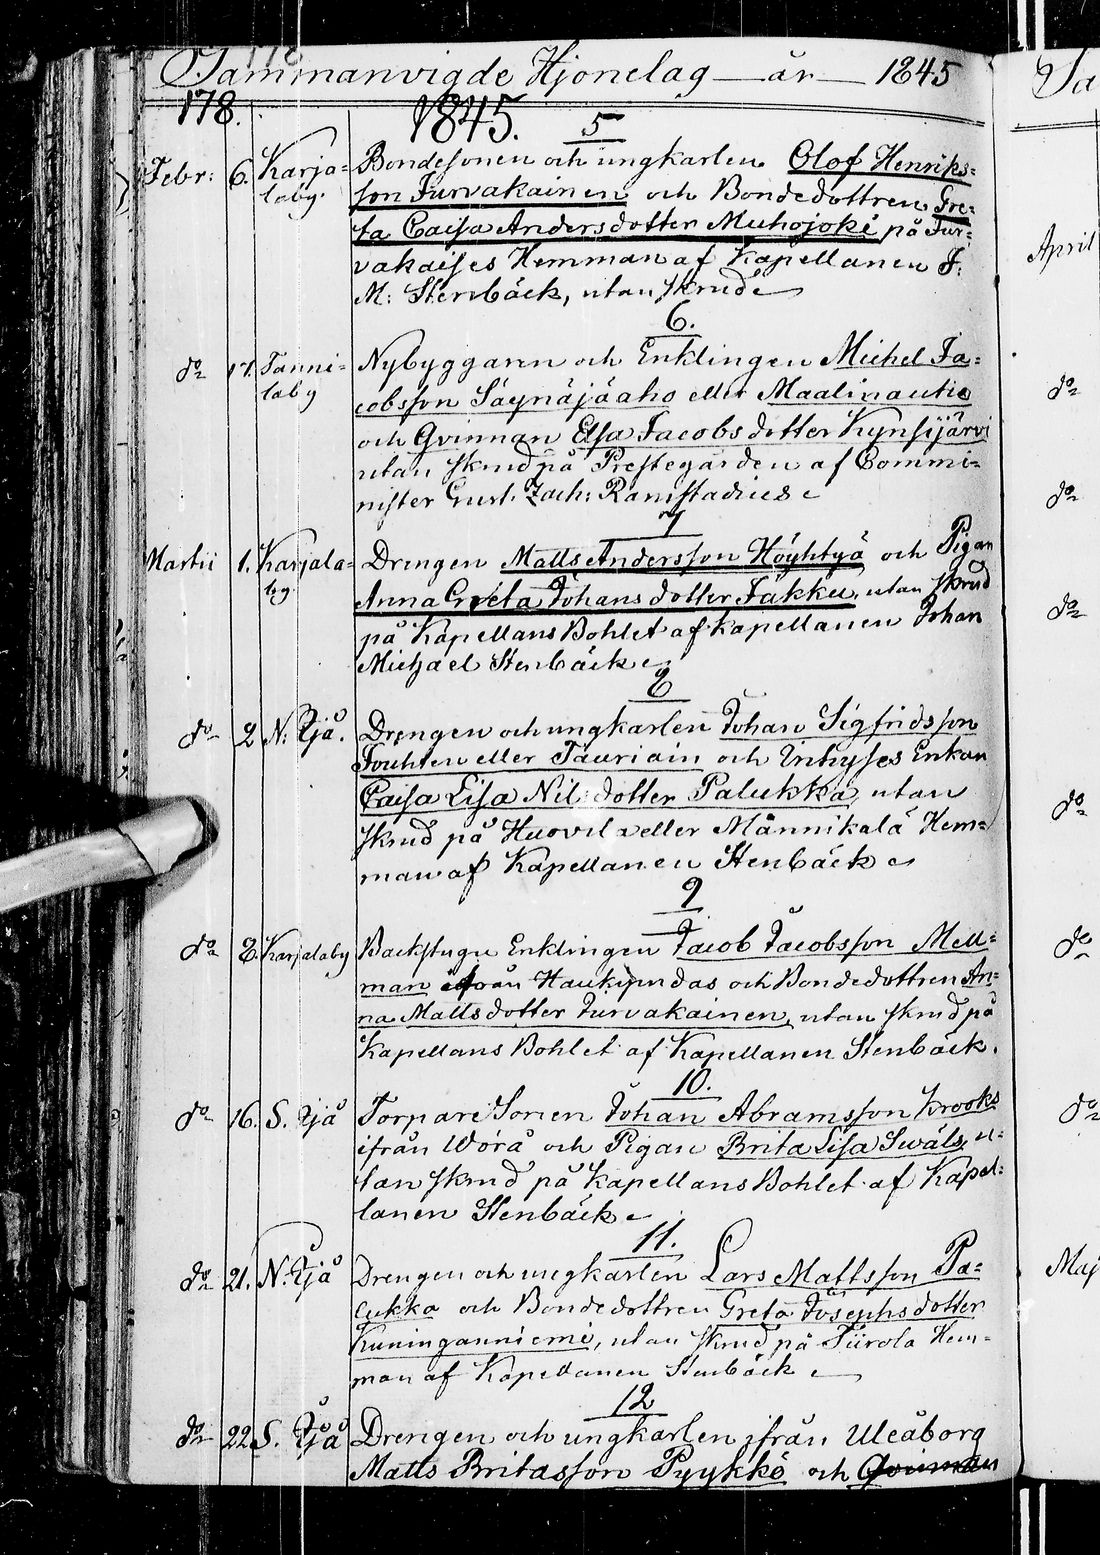 178
Sammanvigde Hjonelag — år — 1845
178.
1845.
5
Febr: 6. Karja= Bondesonen och ungkarlen Olof Henriks=
laby. son Jurvakainen och Bondedottren Gre=
ta Caisa Andersdotter Muhojoki på Jur=
vakaises Hemman af Kapellanen J:
M: Stenbäck, utan skrud
6.
do 17. Tanni= Nybyggaren och Enklingen Michel Ja=
laby cobsson Säynäjäaho eller Maalinautio
och Qvinnan Elsa Jacobsdotter Kynsijärvi
utan skrud på Prestegården af Commi=
nister Gust. Zach: Ramstadius
7
Martii 1. Karjala= Drengen Matts Andersson Höyhtyä och Pigan
by. Anna Greta Johansdotter Jakku, utan skrud
på Kapellans Bohlet af Kapellanen Johan
Michael Stenbäck
8
do 2 N: Ijå. Drengen och ungkarlen Johan Sigfridsson
Jouhten eller Tauriain och Enkan
Caisa Lisa Nilsdotter Palukka, utan
skrud på Huovila eller Männikalä Hem=
man af Kapellanen Stenbäck
9
do 8. Karjalaby Backstugu Enklingen Jacob Jacobsson Mell=
man ifrån Haukipudas och Bondedottren An=
na Mattsdotter Jurvakainen, utan skrud på
Kapellans Bohlet af Kapellanen Stenbäck.
10.
do 16. S. Ijå Torpare Sonen Johan Abramsson Krooks
ifrån Wörå och Pigan Brita Lisa Swäls, u=
tan skrud på Kapellans Bohlet af Kapel=
lanen Stenbäck
11.
do 21. N: Ijå Drengen och ungkarlen Lars Mattsson Pa=
lukka och Bondedottren Greta Josephsdotter
Kuninganniemi, utan skrud på Tiirola Hem=
man af Kapellanen Stenbäck
12
do 22 S. Ijå Drengen och ungkarlen ifrån Uleåborg
Matts Britasson Pyykkö och Qvinnan
Sa
April
do
do
do
do
do
do
Maj